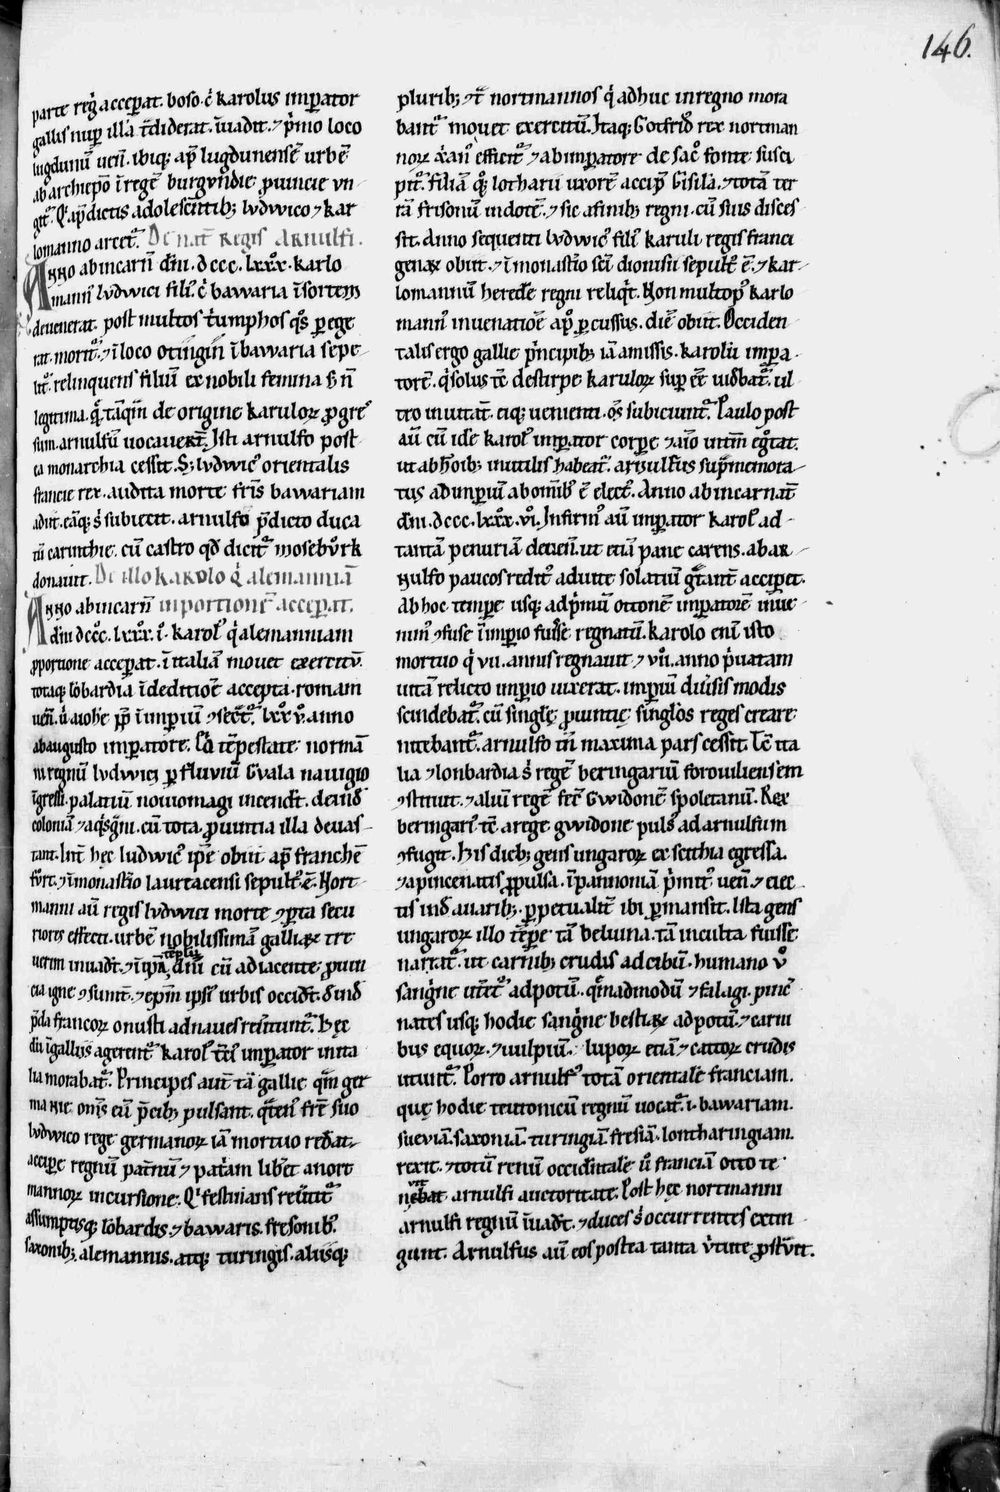 146.
parte reḡ accep̄at. boso. q̇ karolus imꝑator
gallis nuꝑ illā t̄diderat. īuadit. ⁊ pͥmo loco
lugdunū uen̄. ibiq; ap̄ lugdunensē urbē
ab archiep̄o ī regē burgundie ꝓuincie un
git᷑. Qͥ ap̄dictis adolescentib; ludwico ⁊ kar
lomanno arcet᷑. De nat̄ Regis Arnulfi.
Anno ab incarn̄ dn̄i. dccc. lxxͦx. karlo
mannꝰ ludwici filiꝰ. q̇ bawaria ī sortem
deuenerat. post multos tͥumphos qͦs ꝑege
rat. moritͣ. ⁊ ī loco otingin ī bawaria sepe
litͣ. relinquens filiū ex nobili femina s; n̄
legitima. qē tāqͣm de origine karuloꝝ ꝓgres
sum. arnulfū uocauer̄t. Isti arnulfo post
ea monarchia cessit. S; ludwicꝰ orientalis
francie rex. audita morte fr̄is bawariam
adiit. eāq; sͥ subiecit. arnulfo p̄dicto duca
tū carinthie. cū castro qd̄ dicitͣ moseburk
donauit. De illo karolo qͥ alemanniā
Anno ab incarn̄ in portionē acceperat.
dn̄i dccͦc. lxxͦx. i. karolꝰ qͥ alemanniam
ꝓ portione acceꝑat. ī italiā mouet exercitū.
totaq; lōbardia ī deditionē accepta. romam
uen̄. ⁊ a iohē pp̄ ī imperiū ꝯsecͣt᷑. lxxͦ v̄. anno
ab augusto imperatore. Ea tēpestate normā
ni regnū ludwici ꝑ fluuiū Guala nauigio
īgressi. palatiū nouomagi incendt̄. deind̄
coloniā ⁊ aqͥsgͣni. cū tota ꝓuintia illa deuas
tant. Int̄ hęc ludwicꝰ ip̄e obiit ap̄ franche
furt. ⁊ ī monastio laurtacensi sepultꝰ ē. Nort
manni aū regis ludwici morte ꝯꝑta secu
riores effecti. urbē nobilissimā galliaꝝ tre
uerim inuadt̄. ⁊ ī ip̄a templū diū cū adiacente ꝓuin
cia igne ꝯsumt̄. ⁊ ep̄m ipsiꝰ urbis occidt̄. deind̄
p̄da francoꝝ onusti ad naues reūtuntͣ. Hęc
dū ī galliis agerentͣ karolꝰ t̄ciꝰ imperator in ita
lia morabatͣ. Principes aut̄ tā gallie qͣm ger
manie. om̄s eū p̄cib; pulsant. qͣtenꝰ fr̄e suo
ludwico rege germanoꝝ iā mortuo redeat.
acciꝑe regnū patnū ⁊ patͥam libet a nort
mannoꝝ incursione. Qͥ festinans reūtitͣ
assumptisq; lōbardis. ⁊ bawaris. fresonib;.
saxonib; alemannis. atq; turingis. aliisq;
plurib; ꝯt̄ nortmannos qͥ adhuc in regno mora
bantͣ mouet exercitū. Itaq; Gotfridꝰ rex nortman
noꝝ xp̄ianꝰ efficitͣ ⁊ ab imperatore de sacͦ fonte susci
pitͣ. filiā qͦq; lotharii uxorē accip̄ Gisilā. ⁊ totā ter
rā frisonū in dotē. ⁊ sic a finib; regni. cū suis disces
sit. Anno sequenti ludwicꝰ filiꝰ karuli regis franci
genaꝝ obiit. ⁊ ī monastio sc̄i dionisii sepultꝰ ē. ⁊ kar
lomannū heredē regni reliqͥt. Non multop̄ karlo
mannꝰ in uenatiōe apͦ ꝑcussus. diē obiit. Occiden
talis ergo gallie pͥncipib; iā amissis. karolū impera
torē. qͥ solus tē de stirpe karuloꝝ superēē uidebatͣ. ul
tro inuitant̄. eiq; uenienti. ōs subiciuntͣ. Paulo post
aū cū idē karolꝰ imperator corꝑe ⁊ aīo infirm̄ egͦtat.
ut ab hōib; inutilis habeatͣ. arnulfus supͣmemora
tus ad imperiū ab omībꝰ ē electꝰ. Anno ab incarnat̄
dn̄i. dccc. lxxx. vi. Infirmꝰ aū imperator karolꝰ ad
tantā penuriā deuen̄. ut etiā pane carens. ab ar
nulfo paucos reditꝰ ad uite solatiū gͣtant̄ acciperet.
Ab hoc tempore usq; ad pͥmū ottonē imperatorē inue
nimꝰ ꝯfuse ī imperio fuisse regnatū. karolo enī isto
mortuo qͥ vii. annis regnauit ⁊ viiͦ. anno pͥuatam
uitā relicto imperio uixerat. imperiū diūsis modis
scindebatͣ. cū singlę ꝓuintię singlos reges creare
nitebantͣ. arnulfo tn̄ maxima pars cessit. Tē ita
lia ⁊ lonbardia sͥ regē beringariū foroiuliensem
ꝯstituit. ⁊ aliū regē fecͥ Gwidonē spoletanū. Rex
beringarꝰ tē a rege gwidone pulsꝰ ad arnulfum
ꝯfugit. His dieb; gens ungaroꝝ ex scithia egressa.
⁊ a pincenatis ꝓpulsa. ī pannoniā pͥmitꝰ uen̄. ⁊ eiec
tis ind̄ auarib;. ꝑpetualit̄ ibi ꝑmansit. Ista gens
ungaroꝝ illo tēpe tā beluina. tā inculta fuisse
narratͣ. ut carnib; crudis ad cibū. humano vͦ
sangͥne utet̄ͣ ad potū. qͣmadmodū ⁊ falagi. pince
nates usq; hodie sangͥne bestiaꝝ ad potū. ⁊ carni
bus equoꝝ. ⁊ uulpiū. lupoꝝ etiā ⁊ cattoꝝ crudis
utuntͣ. Porro arnulfꝰ totā orientalē franciam.
quę hodie teutonicū regnū uocatͣ. i. bawariam.
sueviā. saxoniā. turingiā. fresiā. lontharingiam.
rexit. ⁊ totū renū occidentale ū franciā otto te
nebat arnulfi auctoritate. Post hęc nortmanni
arnulfi regnū īuadt̄. ⁊ duces sͥ occurrentes extin
gunt. Arnulfus aū eos postea tanta ūtute ꝓstūit.